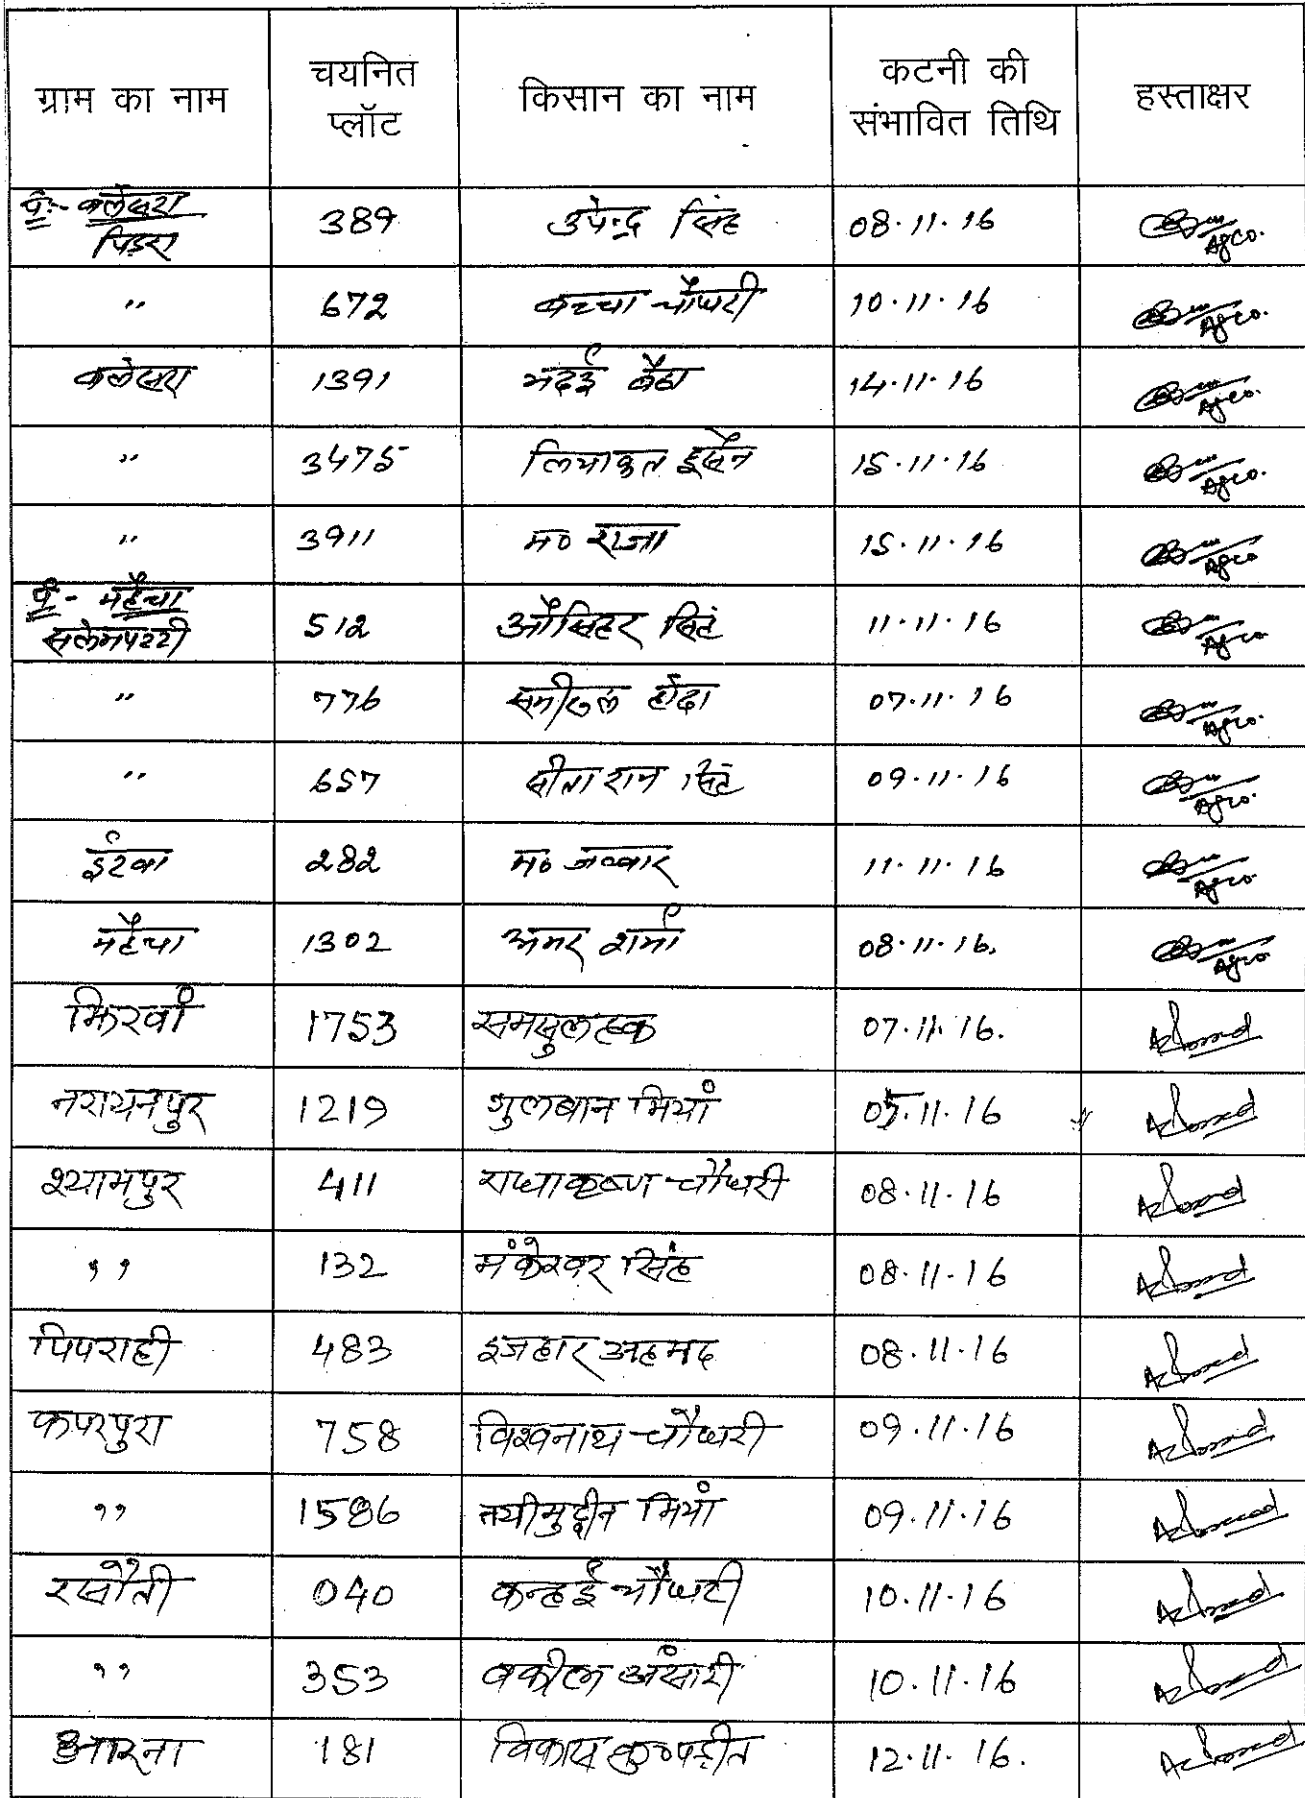 ग्राम का नाम | चयनित प्लॉट | किसान का नाम | कटनी की संभावित तिथि | हस्ताक्षर
पं:- कलेसरा
पिडरा | 389 | उपेन्द्र सिंह | 08.11.16 | Agco.
" | 672 | बच्चा चौधरी | 10.11.16 | Agco.
कलेसरा | 1391 | भदई बैठा | 14.11.16 | Agco.
" | 3475 | लियाकत हुसैन | 15.11.16 | Agco.
" | 3911 | म० राजा | 15.11.16 | Agco
पं- महैचा
सलेमपट्टी | 512 | औसिहर सिंह | 11.11.16 | Agco
" | 776 | होदा | 07.11.16 | Agco.
" | 657 | सीता राम सिंह | 09.11.16 | Agco.
ईटवा | 282 | म० जब्बार | 11.11.16 | Agco
महैचा | 1302 | अमर शर्मा | 08.11.16. | Agco
झिरवाँ | 1753 | समसुलहक | 07.11.16.
नरायनपुर | 1219 | गुलबान मियां | 05.11.16
श्यामपुर | 411 | राधाकृष्ण चौधरी | 08.11.16
,, | 132 | मंकेश्वर सिंह | 08.11.16
पिपराही | 483 | इजहार अहमद | 08.11.16
कपरपुरा | 758 | विश्वनाथ चौधरी | 09.11.16
,, | 1586 | नयीमुद्दीन मियां | 09.11.16
रसौती | 040 | कन्हई चौधरी | 10.11.16
,, | 353 | वकील अंसारी | 10.11.16
आरना | 181 | विकास | 12.11.16.